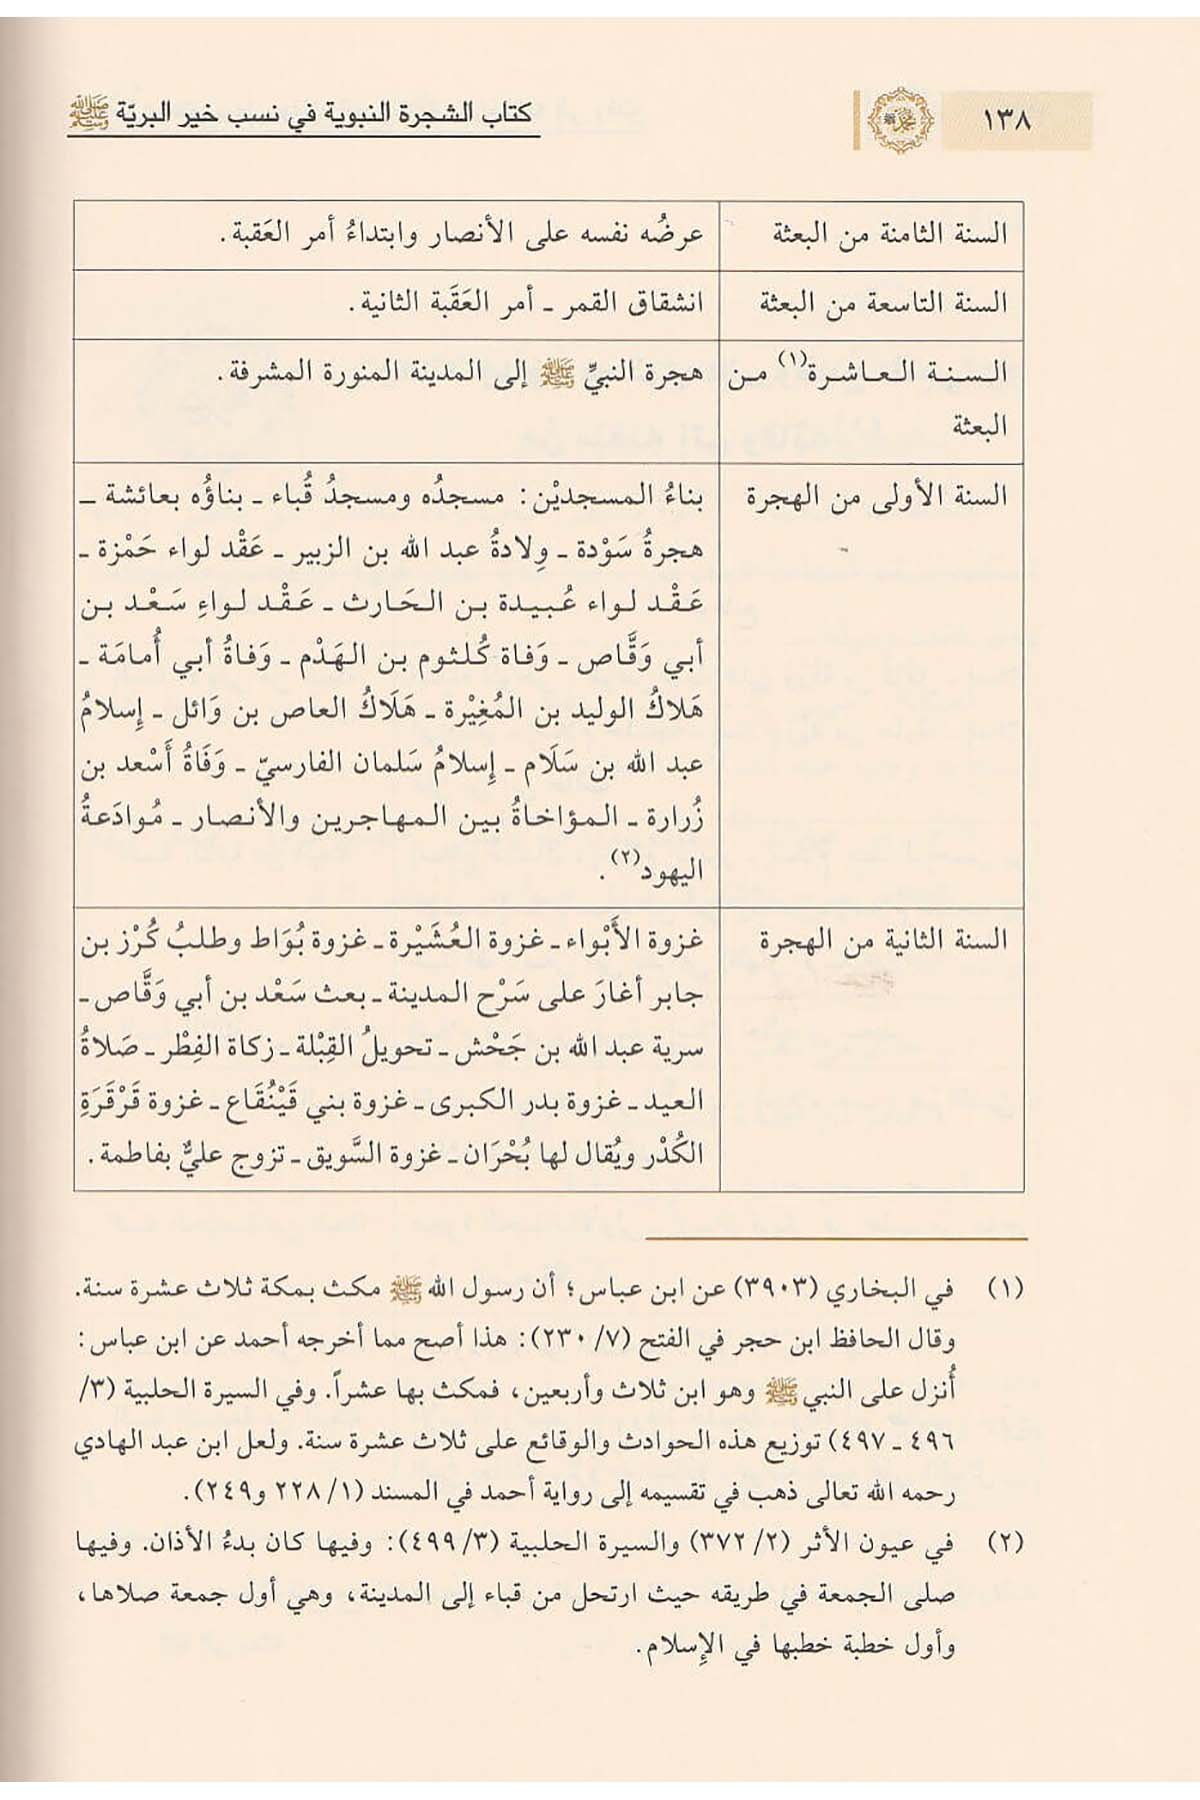 ١٣٨
كتاب الشجرة النبوية في نسب خير البريّة ﷺ
السنة الثامنة من البعثة
عرضُه نفسه على الأنصار وابتداءُ أمر العَقبة.
السنة التاسعة من البعثة
انشقاق القمر ـ أمر العَقَبة الثانية.
السنة العاشرة(١) من
البعثة
هجرة النبيِّ ﷺ إلى المدينة المنورة المشرفة.
السنة الأولى من الهجرة
بناءُ المسجديْن: مسجدُه ومسجدُ قُباء ـ بناؤُه بعائشة ـ
هجرةُ سَوْدة ـ وِلادةُ عبد الله بن الزبير ـ عَقْد لواء حَمْزة ـ
عَقْد لواء عُبيدة بن الحَارث ـ عَقْد لواءِ سَعْد بن
أبي وَقَّاص ـ وَفاة كُلثوم بن الهَدْم ـ وَفاةُ أبي أُمامَة ـ
هَلاكُ الوليد بن المُغِيْرة ـ هَلَاكُ العاص بن وَائل ـ إِسلامُ
عبد الله بن سَلَام ـ إِسلامُ سَلمان الفارسيّ ـ وَفَاةُ أَسْعد بن
زُرارة ـ المؤاخاةُ بين المهاجرين والأنصار ـ مُوادَعةُ
اليهود(٢).
السنة الثانية من الهجرة
غزوة الأَبْواء ـ غزوة العُشَيْرة ـ غزوة بُوَاط وطلبُ كُرْز بن
جابر أغارَ على سَرْح المدينة ـ بعث سَعْد بن أبي وَقَّاص ـ
سرية عبد الله بن جَحْش ـ تحويلُ القِبْلة ـ زكاة الفِطْر ـ صَلاةُ
العيد ـ غزوة بدر الكبرى ـ غزوة بني قَيْنُقَاع ـ غزوة قَرْقَرَةِ
الكُدْر ويُقال لها بُحْرَان ـ غزوة السَّويق ـ تزوج عليٌّ بفاطمة.
(١) في البخاري (٣٩٠٣) عن ابن عباس؛ أن رسول الله ﷺ مكث بمكة ثلاث عشرة سنة.
وقال الحافظ ابن حجر في الفتح (٧/ ٢٣٠): هذا أصح مما أخرجه أحمد عن ابن عباس:
أُنزل على النبي ﷺ وهو ابن ثلاث وأربعين، فمكث بها عشراً. وفي السيرة الحلبية (٣/
٤٩٦ ـ ٤٩٧) توزيع هذه الحوادث والوقائع على ثلاث عشرة سنة. ولعل ابن عبد الهادي
رحمه الله تعالى ذهب في تقسيمه إلى رواية أحمد في المسند (١/ ٢٢٨ و٢٤٩).
(٢) في عيون الأثر (٢/ ٣٧٢) والسيرة الحلبية (٣/ ٤٩٩): وفيها كان بدءُ الأذان. وفيها
صلى الجمعة في طريقه حيث ارتحل من قباء إلى المدينة، وهي أول جمعة صلاها،
وأول خطبة خطبها في الإسلام.